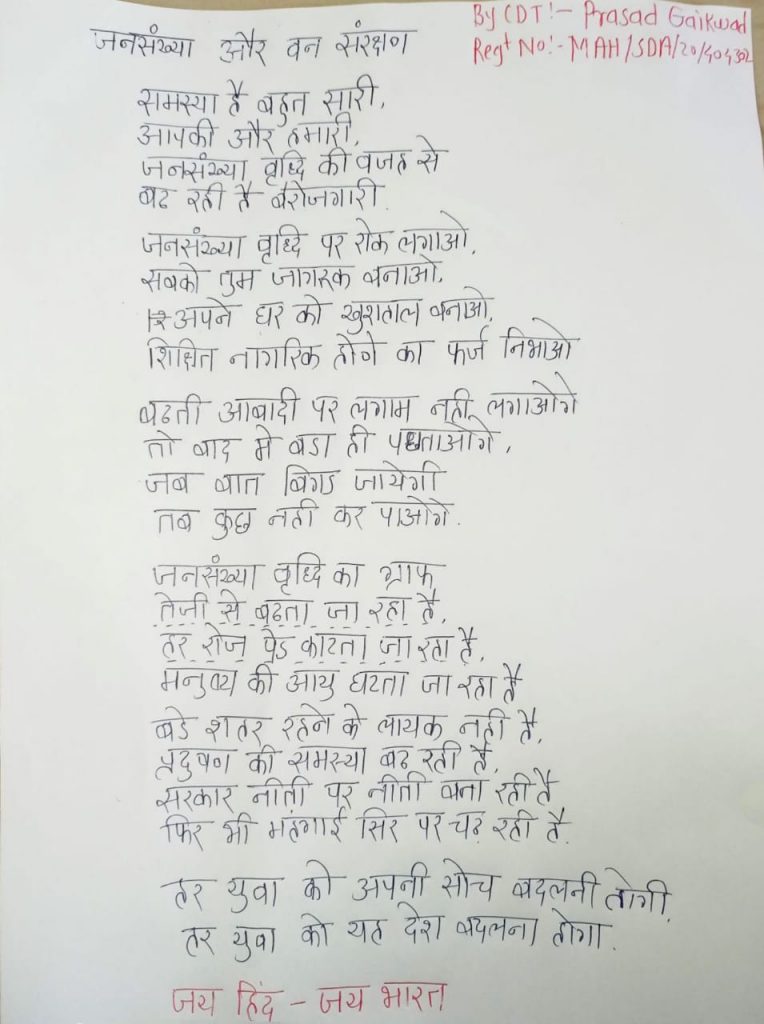 By CDT:- Prasad Gaikwad
Regt No:- MAH/SDA/20/404302
जनसंख्या और वन संरक्षण
समस्या है बहुत सारी,
आपकी और हमारी,
जनसंख्या वृध्दि की वजह से
बढ रही है बेरोजगारी.
जनसंख्या वृध्दि पर रोक लगाओ,
सबको तुम जागरूक बनाओ,
अपने घर को खुशहाल बनाओ,
शिक्षित नागरिक होने का फर्ज निभाओ
बढती आबादी पर लगाम नही लगाओगे
तो बाद मे बडा ही पछताओगे,
जब बात बिगड जायेगी
तब कुछ नही कर पाओगे.
जनसंख्या वृध्दि का ग्राफ
तेजी से बढता जा रहा है,
हर रोज पेड काटता जा रहा है,
मनुष्य की आयु घटता जा रहा है
बडे शहर रहने के लायक नही है,
प्रदुषण की समस्या बढ रही है,
सरकार नीती पर नीती बना रही है
फिर भी महंगाई सिर पर चढ रही है.
हर युवा को अपनी सोच बदलनी होगी,
हर युवा को यह देश बदलना होगा.
जय हिंद - जय भारत